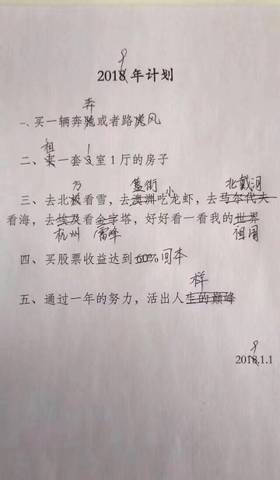 9
2018年计划
奔
一、买一辆奔驰或者路虎风
租 1
二、买一套3室1厅的房子
方 簋街 小 北戴河
三、去北极看雪，去澳洲吃龙虾，去马尔代夫
看海，去埃及看金字塔，好好看一看我的世界
杭州 雷峰 祖国
四、买股票收益达到100%回本
样
五、通过一年的努力，活出人生的巅峰
9
2018.1.1